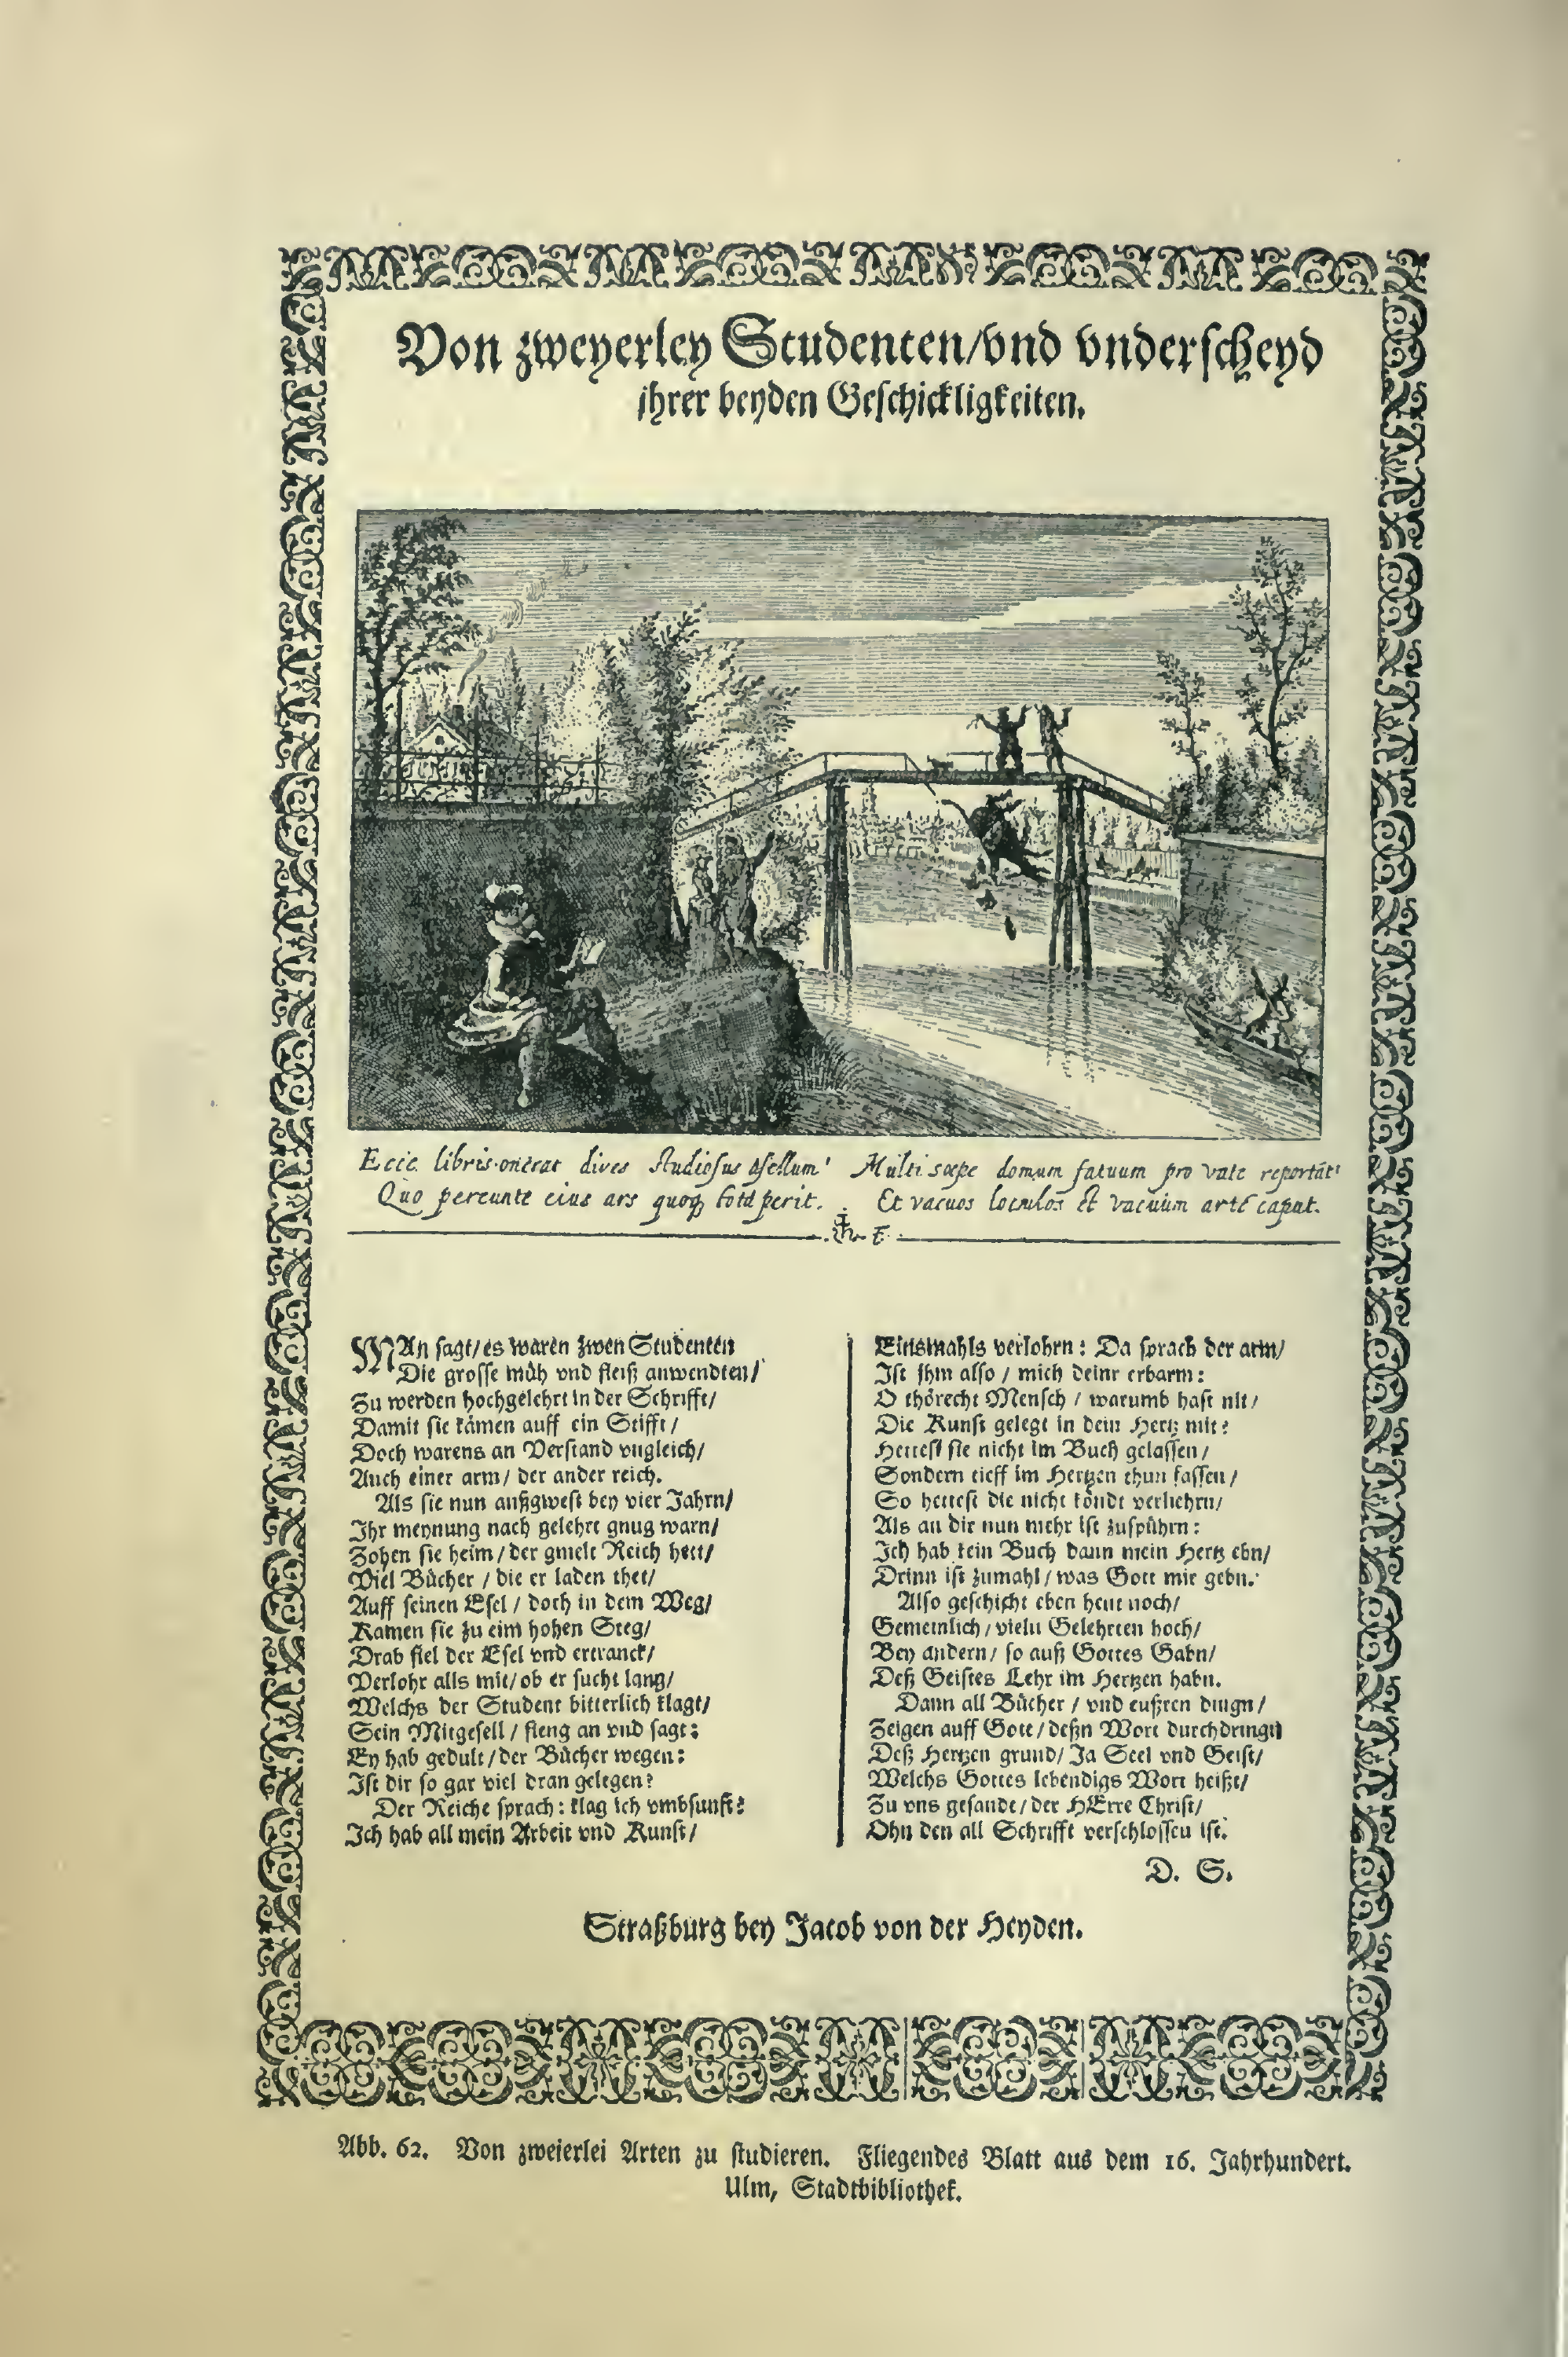 Von zweyerley Studenten/vnd vnderscheyd
ihrer beyden Geschickligkeiten.
Ecce libris onerat dives studiosus asellum
Quo pereunte eius ars quoq̨ tota perit.
Multi sæpe domum fatuum pro vate reportāt
Et vacuos loculos et vacuum arte caput.
MAn sagt/es waren zwen Studenten
Die grosse müh vnd fleiß anwendten/
Zu werden hochgelehrt in der Schrifft/
Damit sie kämen auff ein Stifft/
Doch warens an Verstand vngleich/
Auch einer arm/ der ander reich.
Als sie nun außgwest bey vier Jahrn/
Ihr meynung nach gelehrt gnug warn/
Zohen sie heim/der gmelt Reich hett/
Viel Bücher / die er laden thet/
Auff seinen Esel / doch in dem Weg/
Kamen sie zu eim hohen Steg/
Drab fiel der Esel vnd ertranck/
Verlohr alls mit/ob er sucht lang/
Welchs der Student bitterlich klagt/
Sein Mitgesell / fieng an vnd sagt:
Ey hab gedult/der Bücher wegen:
Ist dir so gar viel dran gelegen?
Der Reiche sprach: klag ich vmbsunst?
Ich hab all mein Arbeit vnd Kunst/
Einsmahls verlohrn: Da sprach der arm/
Ist ihm also / mich deinr erbarm:
O thörecht Mensch / warumb hast nit/
Die Kunst gelegt in dein Hertz mit?
Hettest sie nicht im Buch gelassen/
Sondern tieff im Hertzen thun fassen/
So hettest die nicht köndt verliehrn/
Als an dir nun mehr ist zuspührn:
Ich hab kein Buch dann mein Hertz ebn/
Drinn ist zumahl/was Gott mir gebn.
Also geschicht eben heut noch/
Gemeinlich/vieln Gelehrten hoch/
Bey andern/ so auß Gottes Gabn/
Deß Geistes Lehr im Hertzen habn.
Dann all Bücher / vnd eußren dingn/
Zeigen auff Gott/deßn Wort durchdringn
Deß Hertzen grund/ Ja Seel vnd Geist/
Welchs Gottes lebendigs Wort heißt/
Zu vns gesandt/der HErre Christ/
Ohn den all Schrifft verschlossen ist.
D. S.
Straßburg bey Jacob von der Heyden.
Abb. 62. Von zweierlei Arten zu studieren. Fliegendes Blatt aus dem 16. Jahrhundert.
Ulm, Stadtbibliothek.